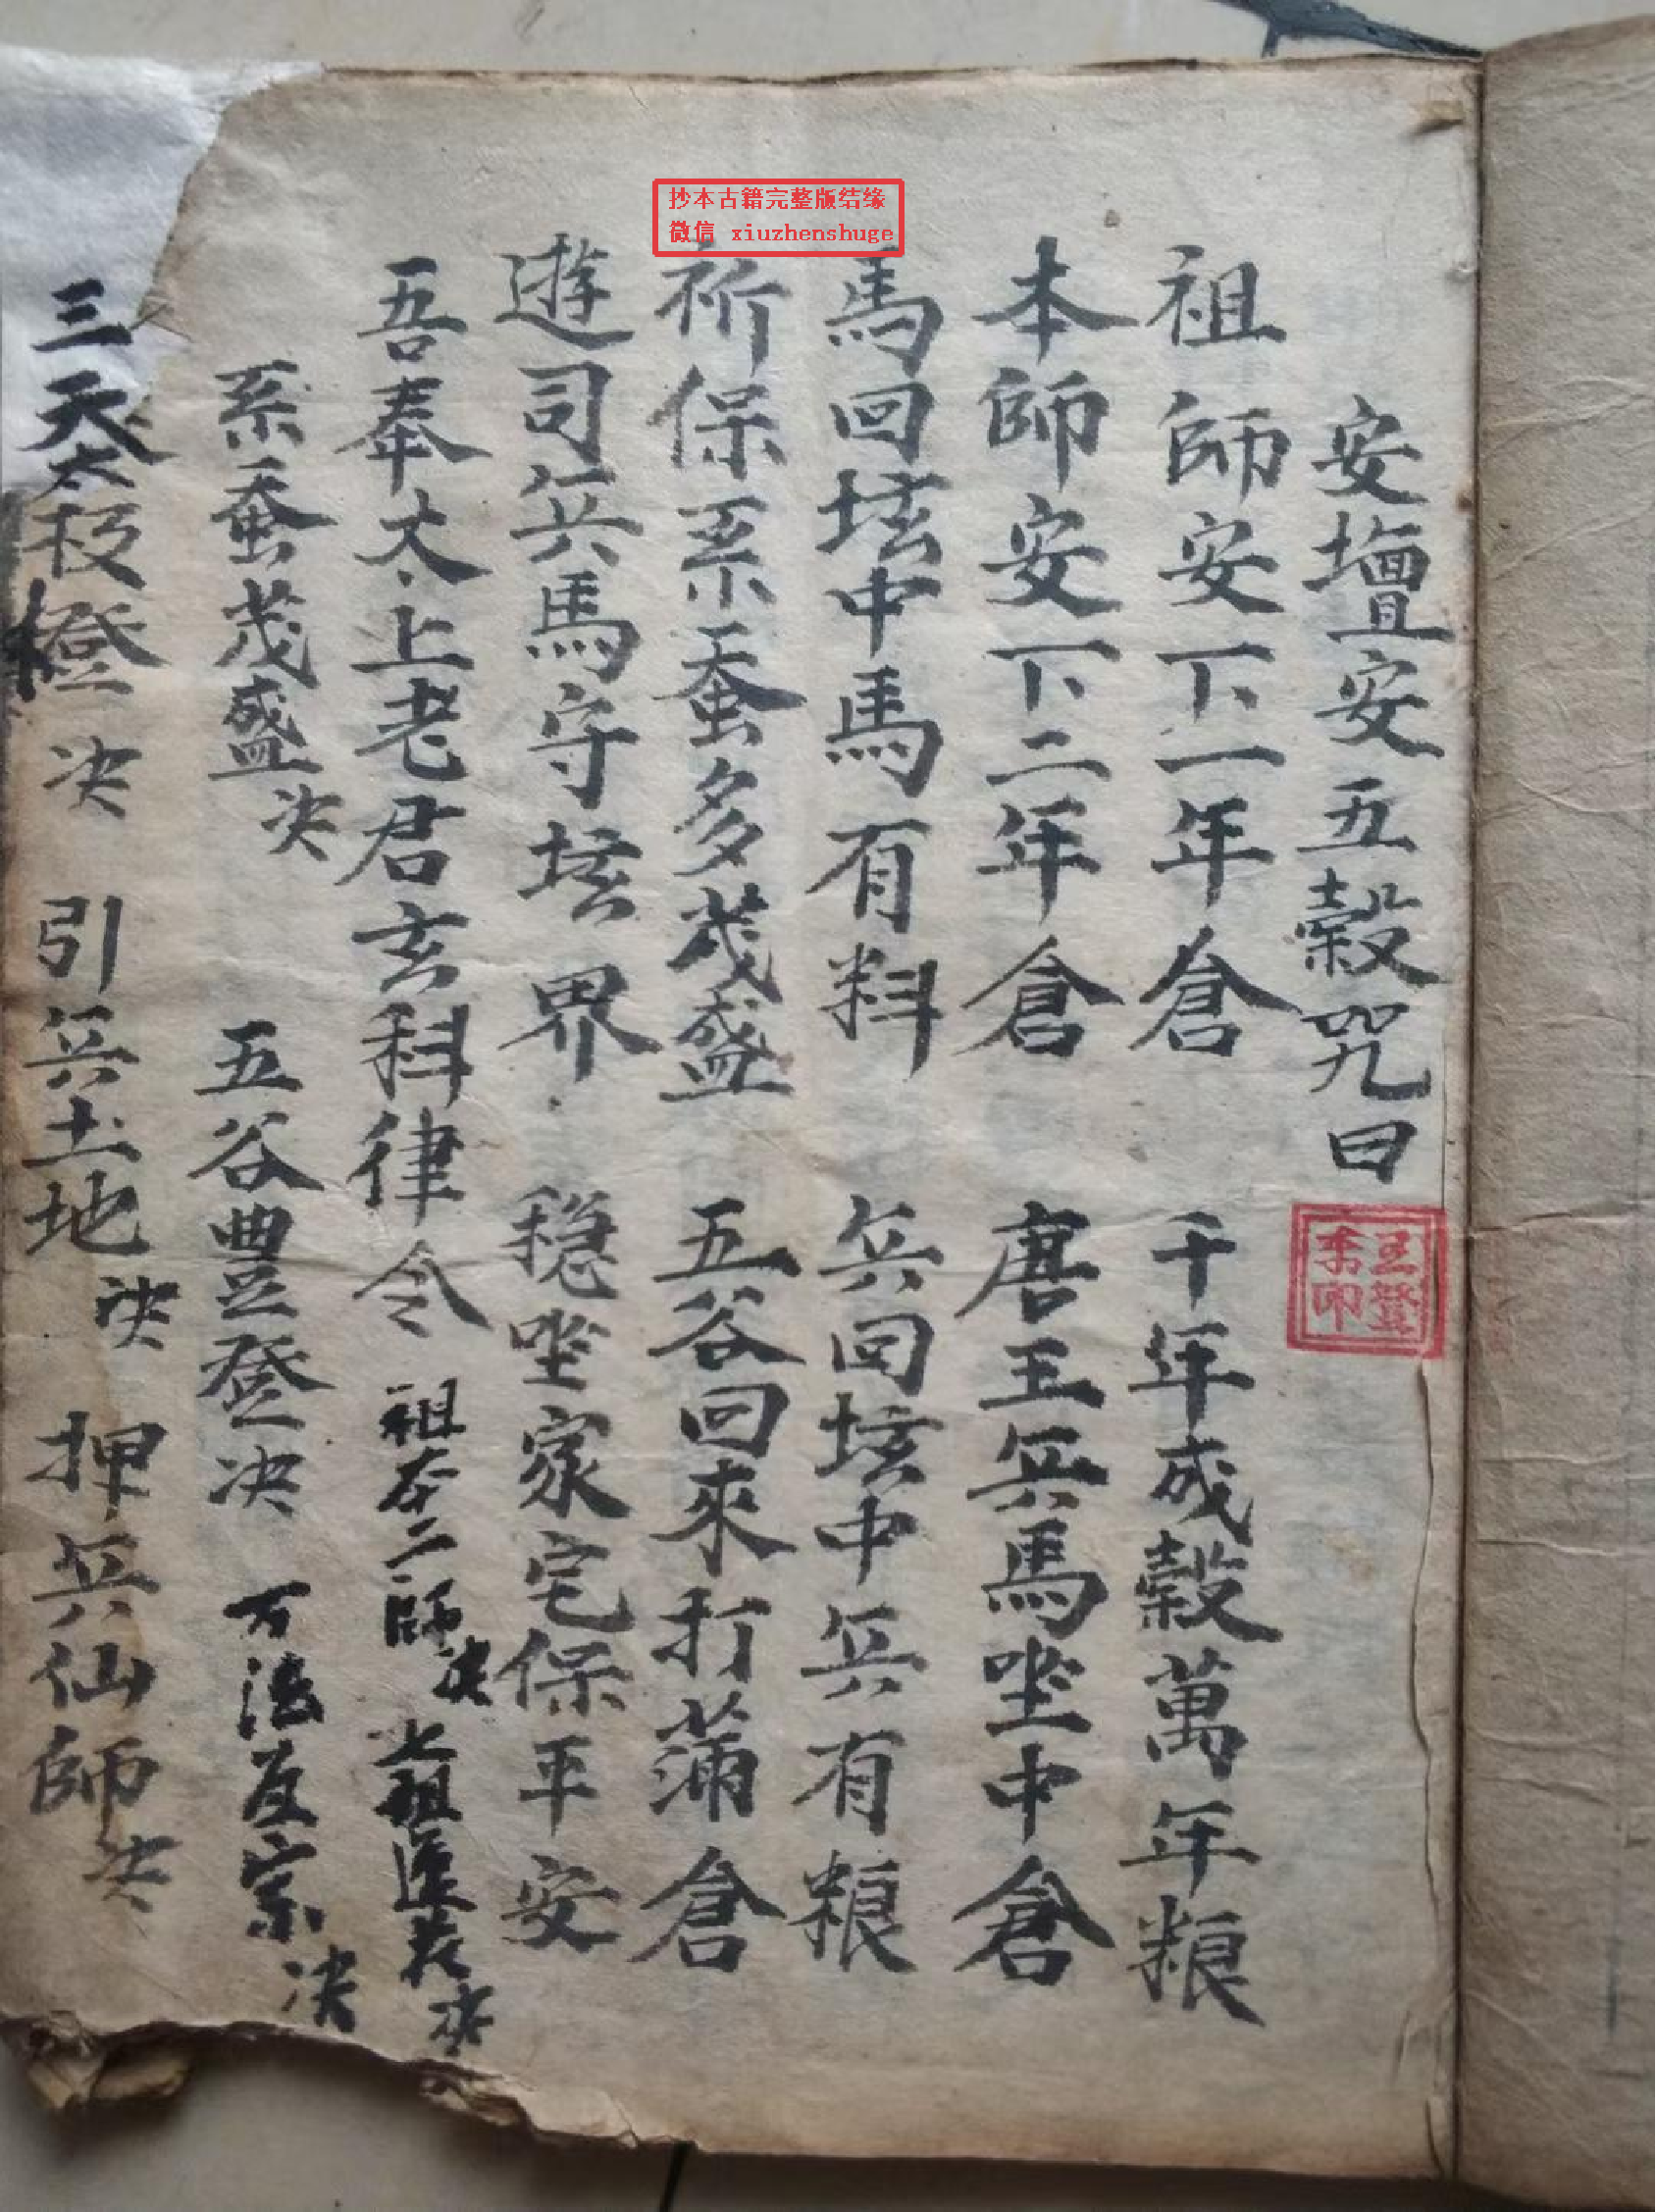 抄本古籍完整版结缘
微信 xiuzhenshuge
安壇安五穀咒曰
祖師安下一年倉 千年成穀萬年粮
本師安下二年倉 唐王兵馬坐中倉
馬回坛中馬有料 兵回坛中兵有粮
祈保系蚕多茂盛 五谷回來打蒲倉
遊司兵馬守坛界 穏坐家宅保平安
吾奉太上老君玄科律令 祖本二師决 七祖匠决
系蚕茂盛决 五谷豊登决 万法互宗决
三天太极橙决 引兵土地决 押兵仙師决